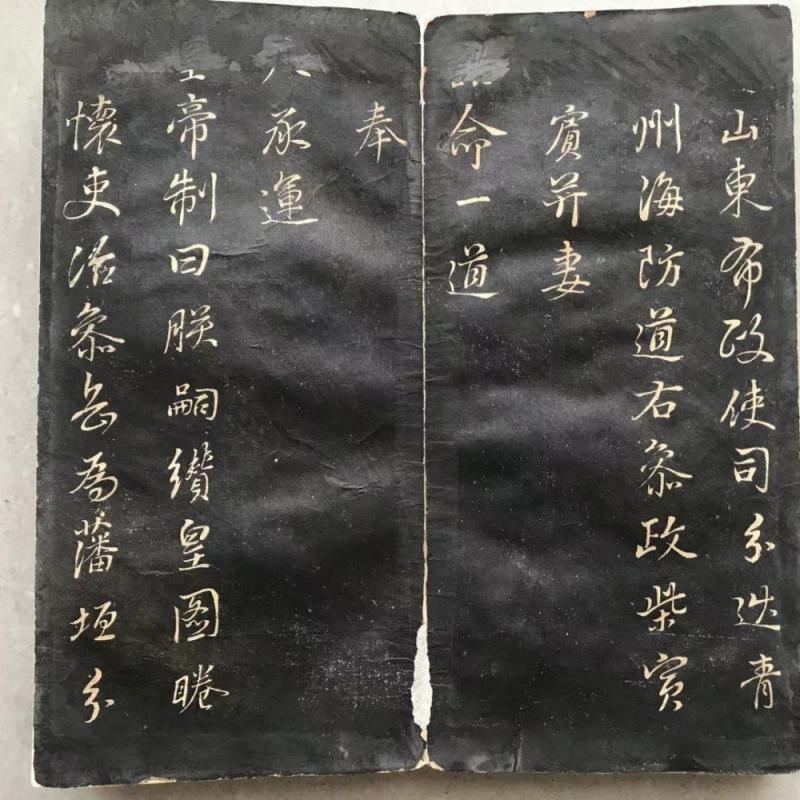 山東布政使司分巡青
州海防道右叅政柴寅
賓并妻
命一道
奉
承運
帝制曰朕嗣纘皇圖睠
懷吏治叅岳為藩垣分